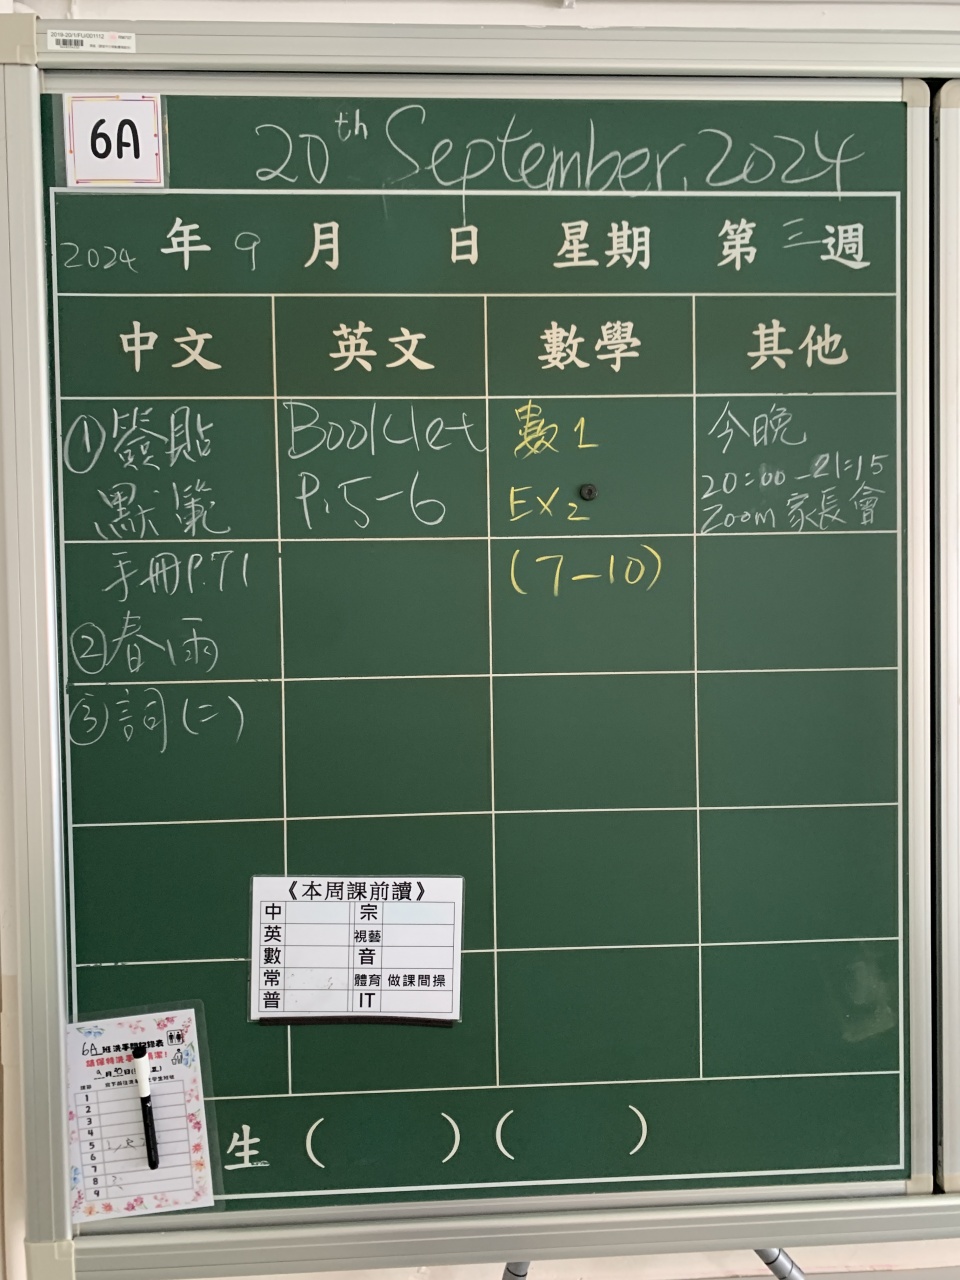 6A
20th September, 2024
2024 年 9 月 日 星期 第 三 週
中文 英文 數學 其他
①簽貼
默範
手冊P.71
②春雨
③詞(二)
Booklet
P.5-6
數1
EX2
(7-10)
今晚
20:00-21:15
Zoom 家長會
《本周課前讀》
中 宗
英 視藝
數 音
常 體育 做課間操
普 IT
6A 班洗手間記錄表
1
2
3
4
5
6
7
8
9
生 ( ) ( )